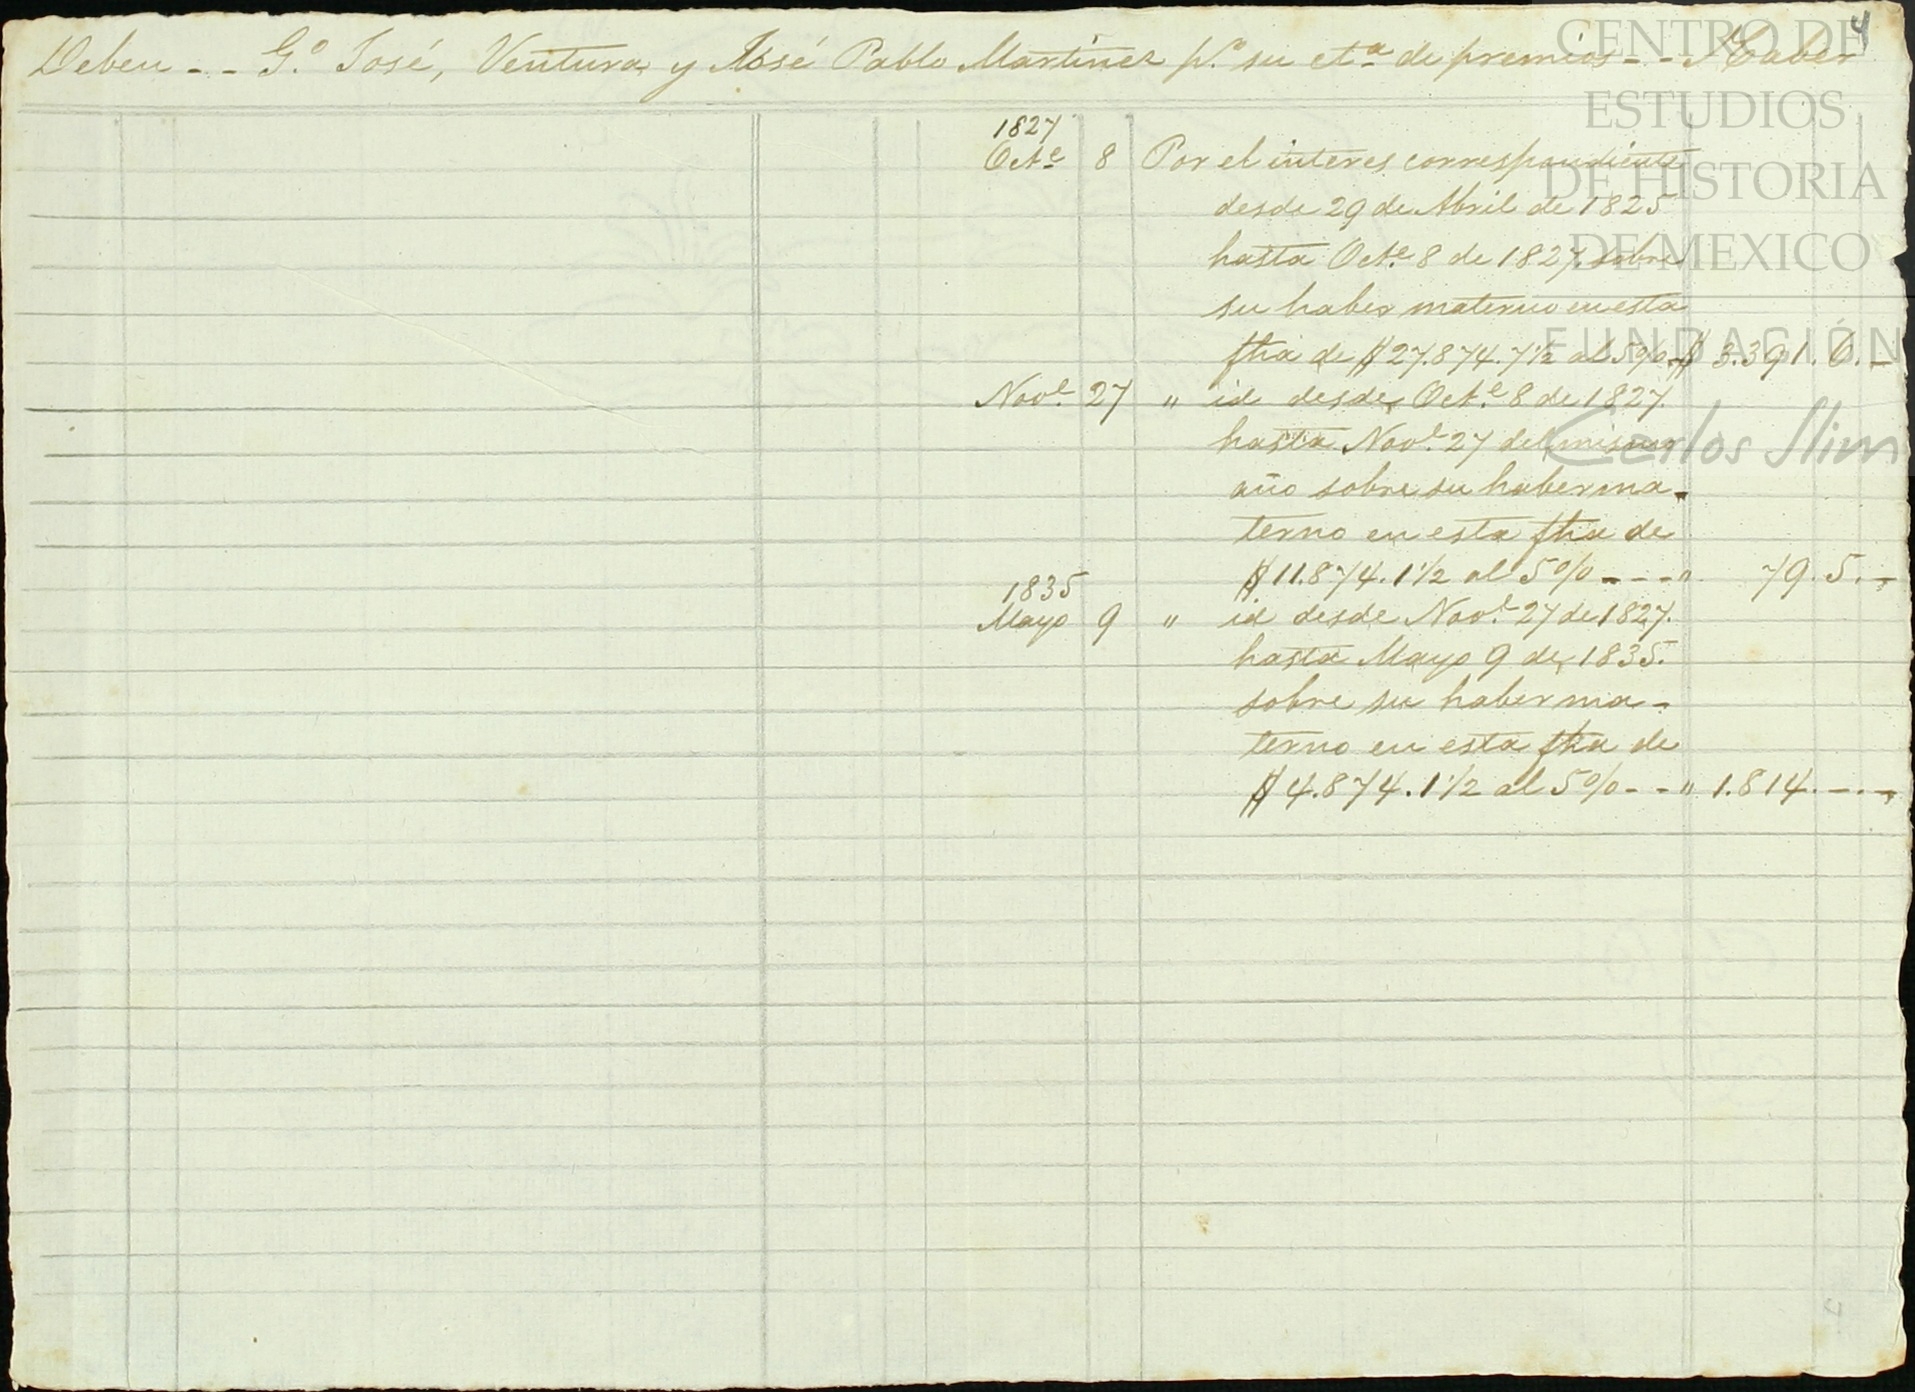 4
Deben - - G.º José, Ventura y José Pablo Martinez p.r su cta de premios - - Haber
1827
Octe 8 Por el interes correspondiente
desde 29 de Abril de 1825
hasta Oct.e 8 de 1827. sobre
su haber materno en esta
fha de $27.874.7½ al 5%- $ 3.391. 6. -
Nov.e 27 " id desde Oct.e 8 de 1827.
hasta Nov.e 27 del mismo
año sobre su haber ma-
terno en esta fha de
$11.874.1½ al 5% - - - " 79. 5. -
1835
Mayo 9 " id desde Nov.e 27 de 1827.
hasta Mayo 9 de 1835.
sobre su haber ma-
terno en esta fha de
$4.874.1½ al 5% - - " 1.814. -. -
CENTRO DE
ESTUDIOS
DE HISTORIA
DE MEXICO
FUNDACIÓN
Carlos Slim